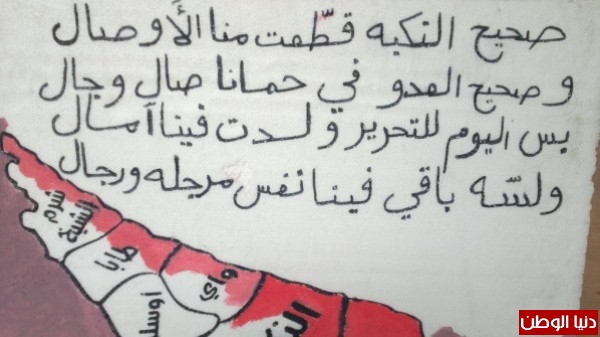 صحيح النكبه قطّعت منا الأوصال
وصحيح العدو في حمانا صال وجال
بس اليوم للتحرير ولدت فينا آمال
ولسّه باقي فينا نفس مرجله ورجال
دنيا الوطن